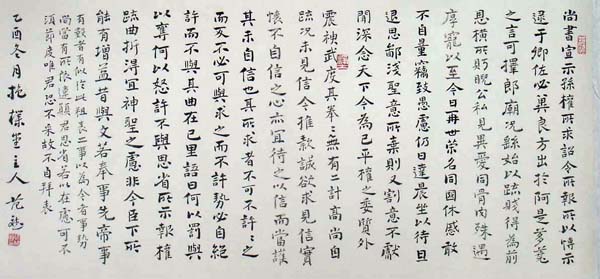 尚書宣示孫權所求詔令所報所以博示
逮于卿佐必冀良方出於阿是芻蕘
之言可擇郎廟況繇始以疏賤得為前
恩橫所盻睨公私見異愛同骨肉殊遇
厚寵以至今日再世榮名同國休慼敢
不自量竊致愚慮仍日達晨坐以待旦
退思鄙淺聖意所棄則又割意不獻
聞深念天下今為已平權之委質外
震神武度其拳々無有二計高尚自
疏況未見信今推款誠欲求見信實
懷不自信之心亦宜待之以信而當護
其未自信也其所求者不可不許々之
而反不必可與求之而不許勢必自絕
許而不與其曲在己里語曰何以罰與
以奪何以怒許不與思省所示報權
疏曲折得宜神聖之慮非今臣下所
能有增益昔與文若奉事先帝事
有數者有似於此粗表二事以為今者事勢
尚當有所依違願君思省若以在慮可不
須節度唯君恐不采故不自拜表
乙酉冬月抱樸堂主人